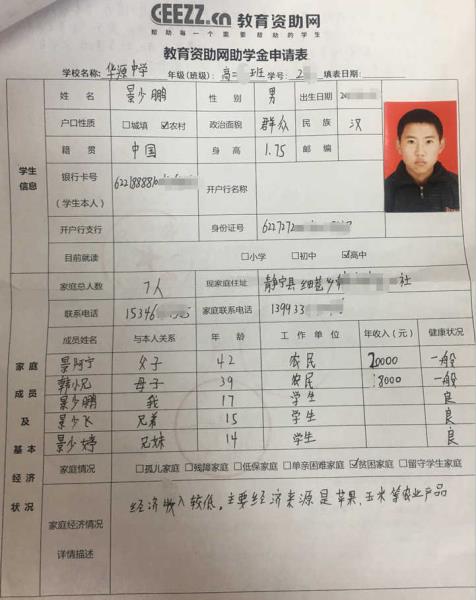 CEEZZ.cn 教育资助网
帮助每一个需要帮助的学生
教育资助网助学金申请表
学校名称: 华源中学 年级(班级): 高二 班 学号: 2 填表日期:
姓名 景少鹏 性别 男 出生日期 20
户口性质 □城填 ☑农村 政治面貌 群众 民族 汉
籍贯 中国 身高 1.75 邮编
学生信息
银行卡号(学生本人) 622188881 开户行名称
开户行支行 身份证号 6227272
目前就读 □小学 □初中 ☑高中
家庭总人数 7人 现家庭住址 静宁县细巴乡 社
联系电话 15346 家庭联系电话 139933
成员姓名 与本人关系 年龄 工作单位 年收入(元) 健康状况
家庭成员及基本经济状况
景阿宁 父子 42 农民 20000 一般
韩小兄 母子 39 农民 18000 一般
景少鹏 我 17 学生 良
景少飞 兄弟 15 学生 良
景少婷 兄妹 14 学生 良
家庭情况 □孤儿家庭 □残障家庭 □低保家庭 □单亲困难家庭 ☑贫困家庭 □留守学生家庭
家庭经济情况详情描述
经济收入较低。主要经济来源是苹果、玉米等农业产品